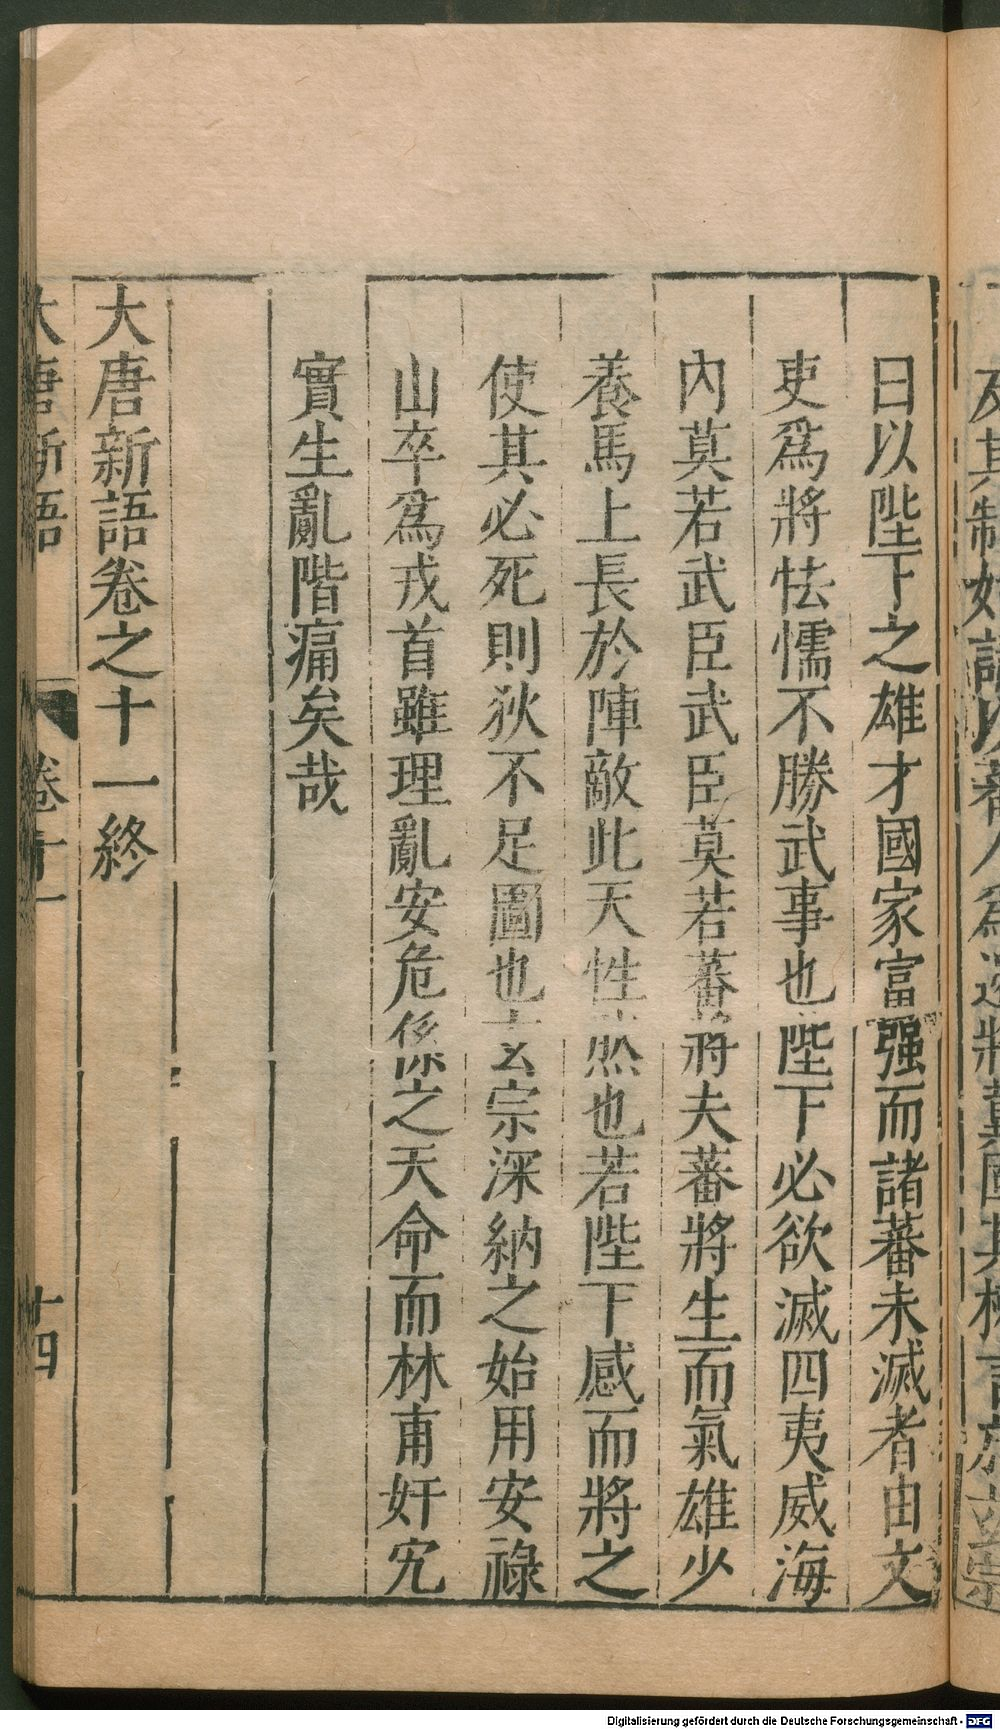 及其制始請以蕃人爲邊將
曰以陛下之雄才國家富强而諸蕃未滅者由文
吏爲將怯懦不勝武事也陛下必欲滅四夷威海
內莫若武臣武臣莫若蕃將夫蕃將生而氣雄少
養馬上長於陣敵此天性然也若陛下感而將之
使其必死則狄不足圖也玄宗深納之始用安祿
山卒爲戎首雖理亂安危係之天命而林甫奸宄
實生亂階痛矣哉
大唐新語卷之十一終
大唐新語 卷十一 十四
Digitalisierung gefördert durch die Deutsche Forschungsgemeinschaft - DFG